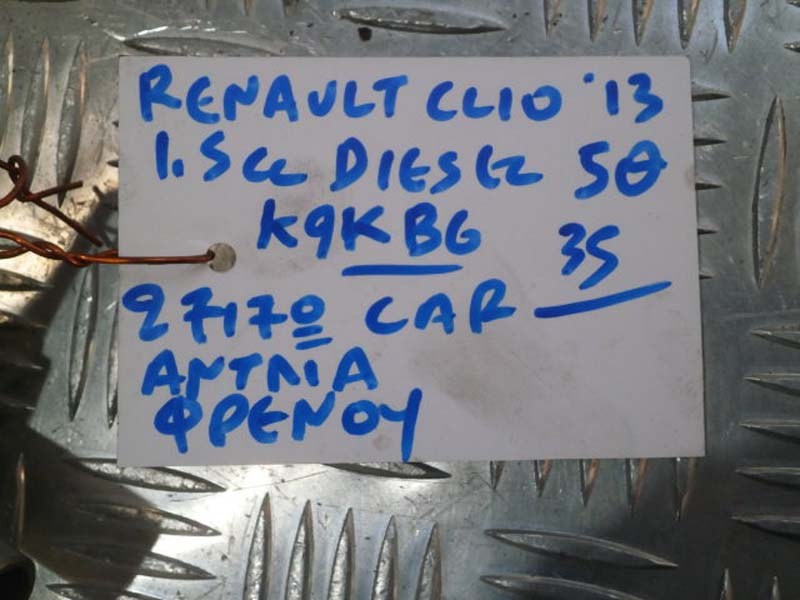 RENAULT CLIO '13
1.5cc DIESEL 5Θ
K9KBG 35
27170 CAR
ΑΝΤΛΙΑ
ΦΡΕΝΟΥ